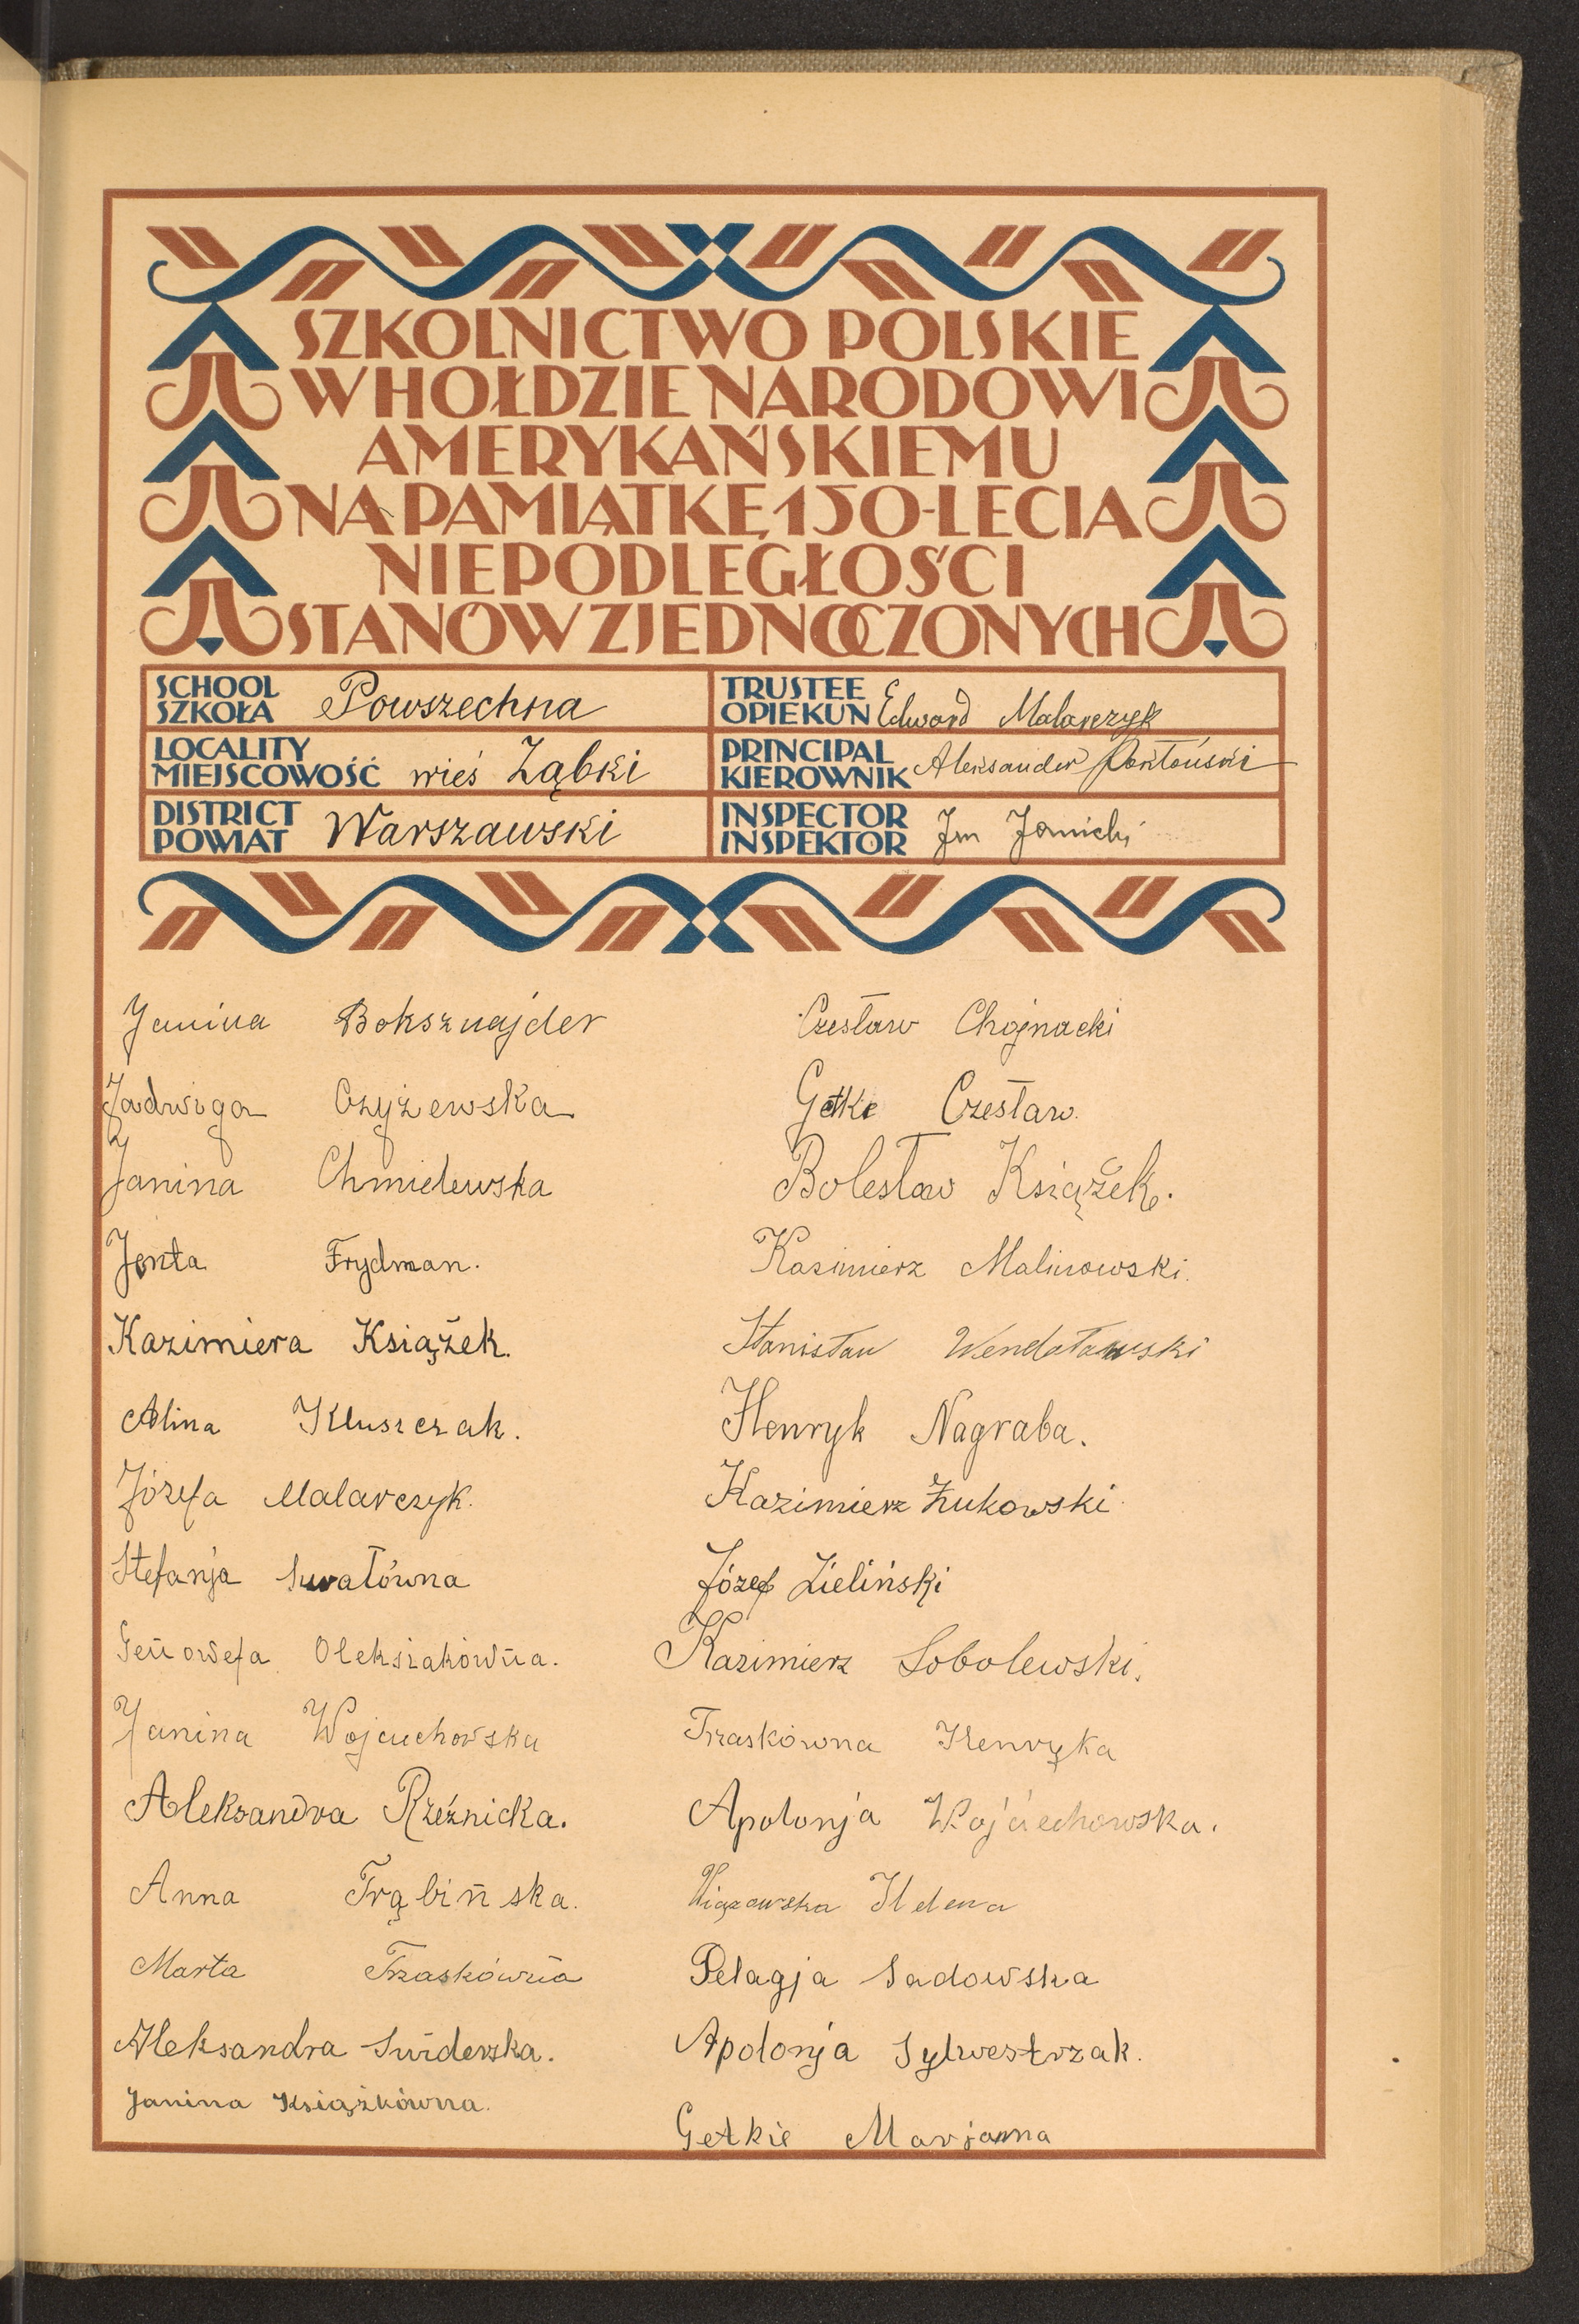 SZKOLNICTWO POLSKIE
W HOŁDZIE NARODOWI
AMERYKAŃSKIEMU
NA PAMIĄTKĘ 150-LECIA
NIEPODLEGŁOŚCI
STANÓW ZJEDNOCZONYCH
SCHOOL
SZKOŁA Powszechna
TRUSTEE
OPIEKUN Edward Malarczyk
LOCALITY
MIEJSCOWOŚĆ wieś Ząbki
PRINCIPAL
KIEROWNIK Aleksander
DISTRICT
POWIAT Warszawski
INSPECTOR
INSPEKTOR Jan Janicki
JaninaBoksznajder
Czesław Chojnacki
Jadwiga Czyżewska
Getke Czesław.
Janina Chmielewska
Bolesław Książek.
Jenta Frydman.
Kazimierz Malinowski.
Kazimiera Książek.
Stanisław
Alina Kluszczak.
Henryk Nagraba.
Józefa Malarczyk.
Kazimierz Żukowski
Stefanja Suwałówna
Józef Zieliński
Genowefa Oleksiakówna.
Kazimierz Sobolewski.
Janina Wojciechowska
Trzaskówna Henryka
Aleksandra Rzeźnicka.
Apolonja Wojciechowska.
Anna Trąbińska.
Wiązowska Helena
Marta Trzaskówna
Pelagja Sadowska
Aleksandra Świderska.
Apolonja Sylwestrzak.
Janina Książkówna.
Getkie Marjanna